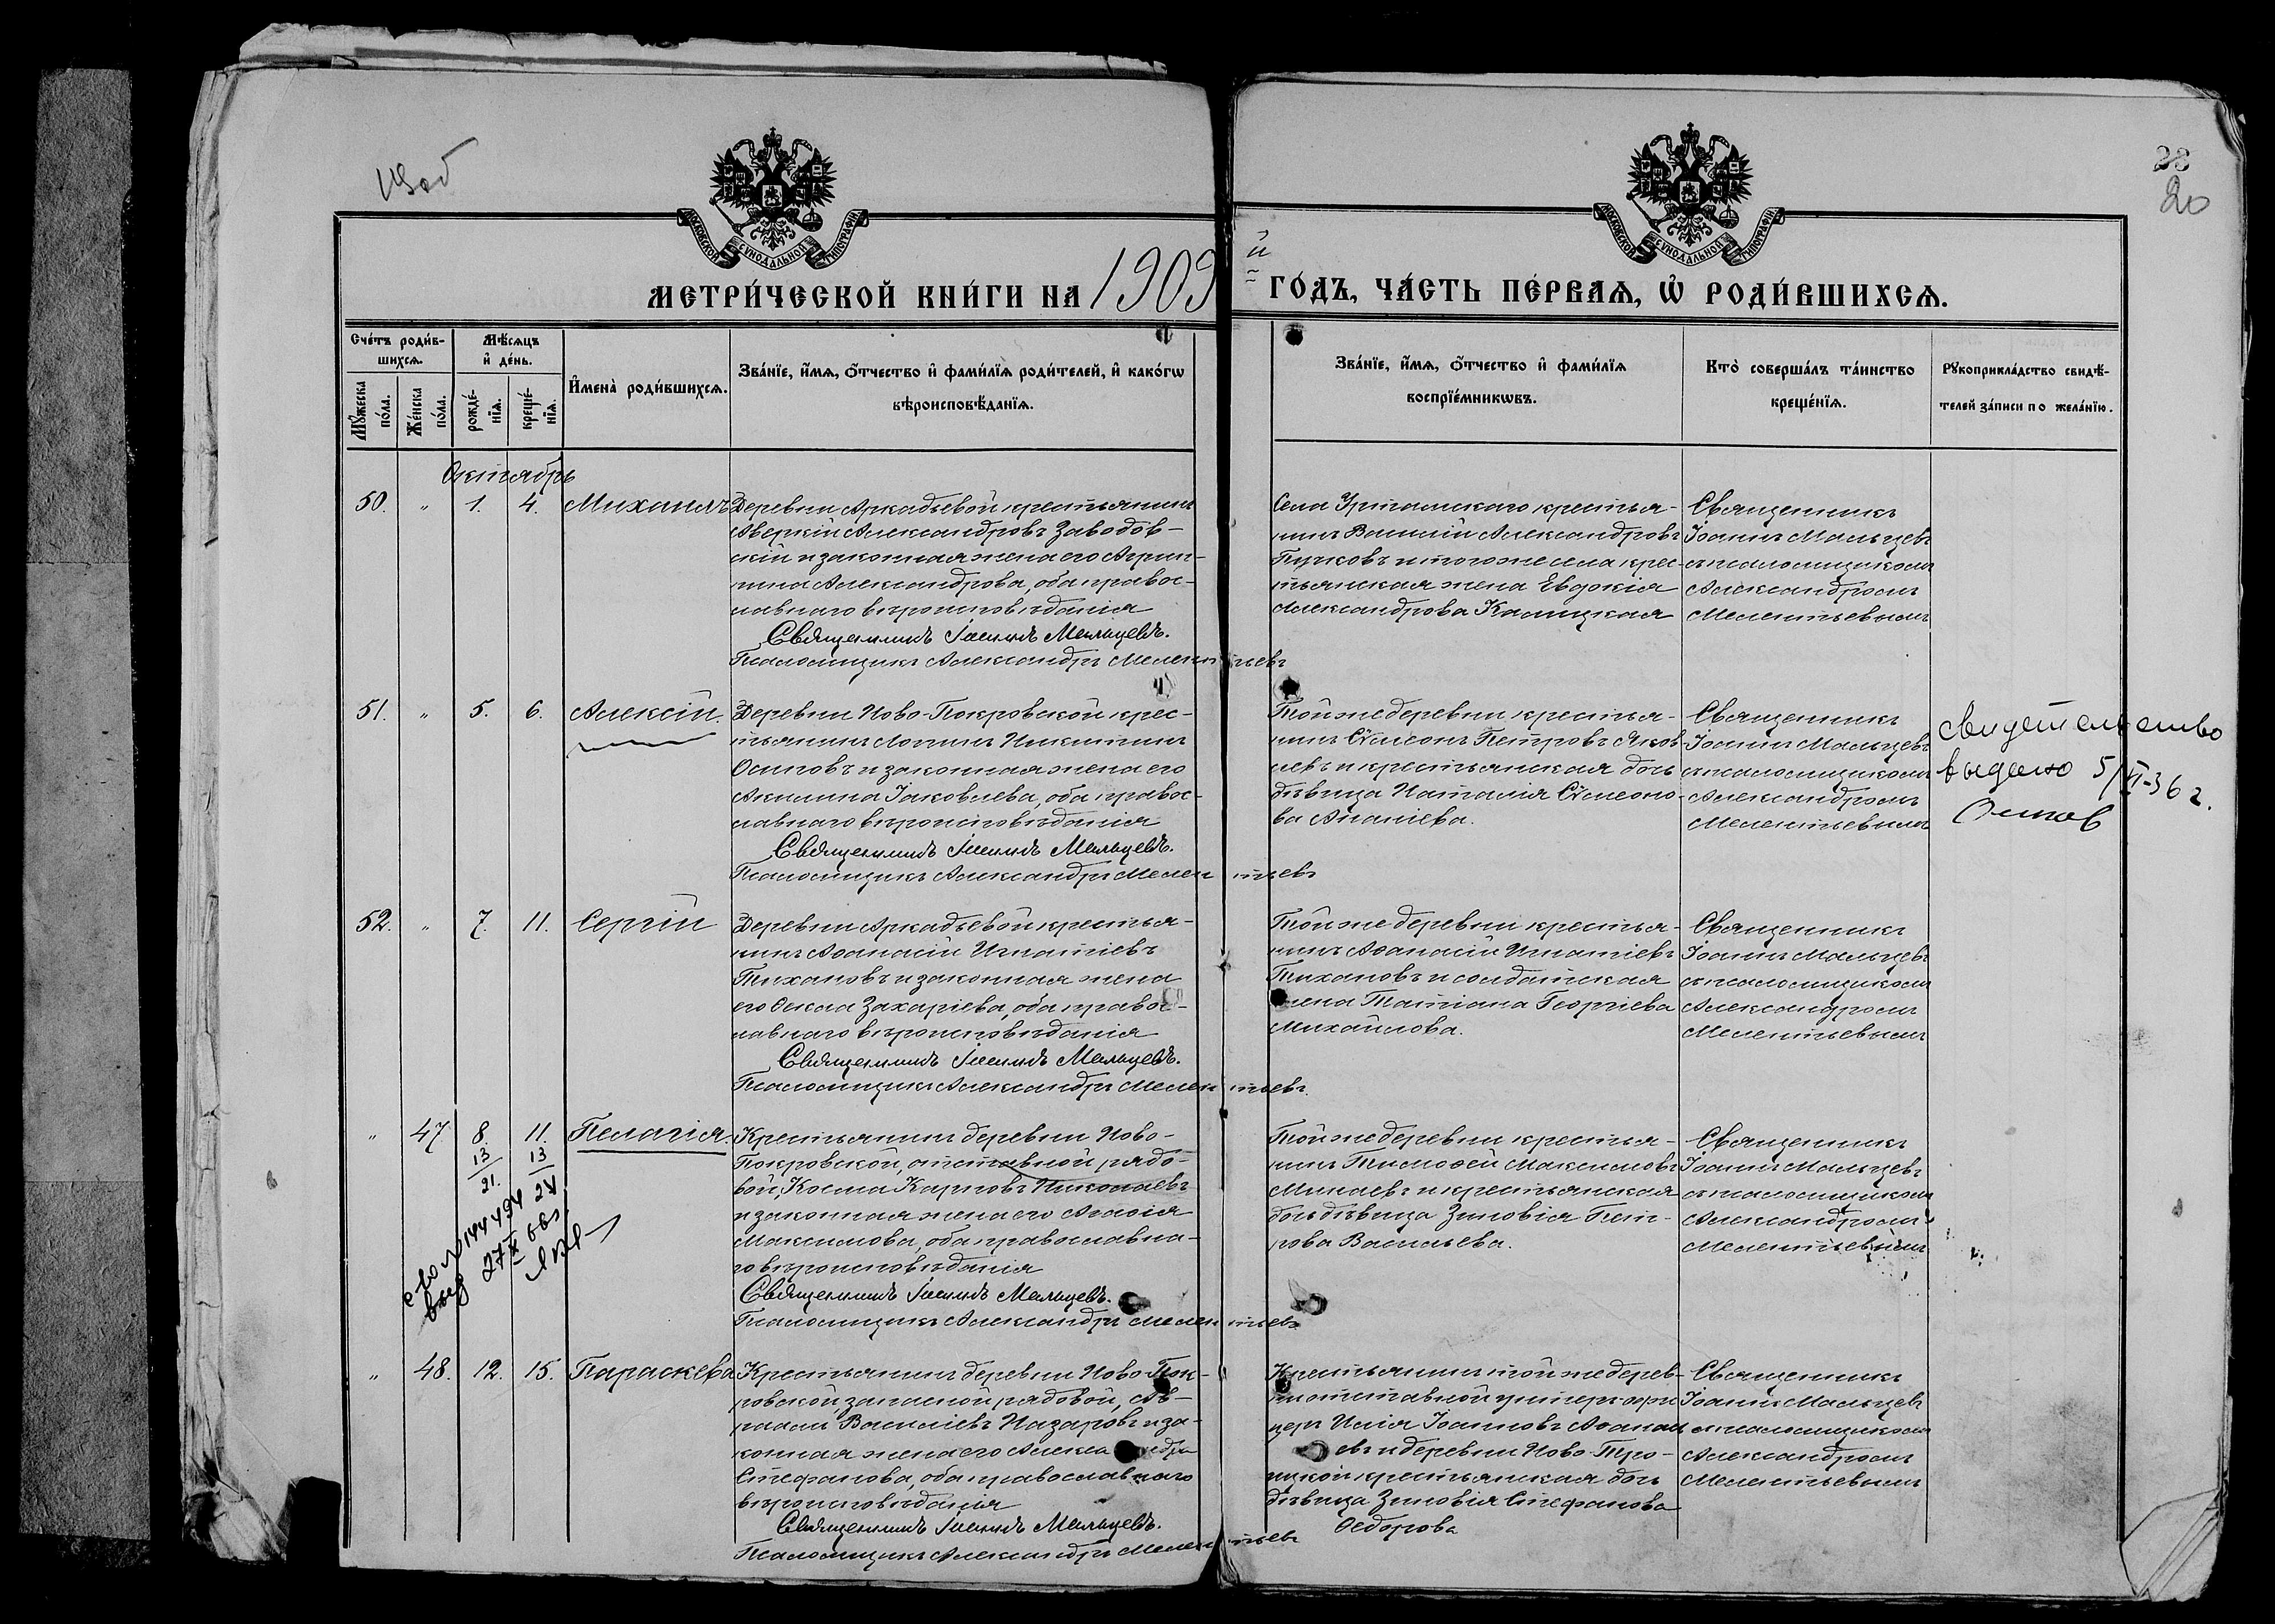 28
20
МОСКОВСКОЙ СѴНОДАЛЬНОЙ ТИПОГРАФІИ
МОСКОВСКОЙ СѴНОДАЛЬНОЙ ТИПОГРАФІИ
МЕТРИ́ЧЕСКОЙ КНИ́ГИ НА 1909 й ГО́ДЪ, ЧА́СТЬ ПЕ́РВАЯ, Ѡ҆ РОДИ́ВШИХСЯ.
Сче́тъ роди́в-
шихсѧ.
Мꙋ́жеска по́ла.
Же́нска по́ла.
Мѣ́сѧцъ
и҆ де́нь.
рожде́-
нїѧ.
креще́-
нїѧ.
И҆мена̀ роди́вшихсѧ.
Зва́нїе, и҆́мѧ, ѻ҆́тчество и҆ фами́лїѧ роди́телей, и҆ како́гѡ
вѣроисповѣ́данїѧ.
Зва́нїе, и҆́мѧ, ѻ҆́тчество и҆ фами́лїѧ
воспрїе́мникѡвъ.
Кто̀ соверша́лъ та́инство
креще́нїѧ.
Рꙋкоприкла́дство свидѣ́-
телей за́писи по жела́нїю.
Октябрь
50. " 1. 4. Михаилъ
Деревни Аркадьевой крестьянинъ
Аверкій Александровъ Заводов-
скій и законная жена его Агрип-
пина Александрова, оба правос-
лавнаго вѣроисповѣданія
Священникъ Іоаннъ Мальцевъ.
Псаломщикъ Александръ Мелентьевъ
Села Уртамскаго крестья-
нинъ Василій Александровъ
Пучковъ и того же села крес-
тьянская жена Евдокія
Александрова Калицкая
Священникъ
Іоаннъ Мальцевъ
съ псаломщикомъ
Александромъ
Мелентьевымъ
51. " 5. 6. Алексій.
Деревни Ново-Покровской крес-
тьянинъ Логинъ Никитинъ
Осиповъ и законная жена его
Акилина Іаковлева, оба правос-
лавнаго вѣроисповѣданія
Священникъ Іоаннъ Мальцевъ.
Псаломщикъ Александръ Мелентьевъ
Той же деревни крестья-
нинъ Сѷмеонъ Петровъ Яков-
левъ и крестьянская дочь
дѣвица Наталія Сѷмеоно-
ва Ананіева.
Священникъ
Іоаннъ Мальцевъ
съ псаломщикомъ
Александромъ
Мелентьевымъ
Свидетельство
выдано 5/VI-36 г.
52. " 7. 11. Сергій
Деревни Аркадьевой крестья-
нинъ Аѳанасій Игнатіевъ
Тихановъ и законная жена
его Ѳекла Захаріева, оба правос-
лавнаго вѣроисповѣданія
Священникъ Іоаннъ Мальцевъ.
Псаломщикъ Александръ Мелентьевъ.
Той же деревни крестья-
нинъ Аѳанасій Игнатіевъ
Тихановъ и солдатская
жена Татіана Георгіева
Михайлова.
Священникъ
Іоаннъ Мальцевъ
съ псаломщикомъ
Александромъ
Мелентьевымъ
" 47 8. 11. Пелагія.
13 13
21. 24
144494
выд 27
Крестьянинъ деревни Ново-
Покровской, отставной рядо-
вой, Косма Карповъ Николаевъ
и законная жена его Агаѳія
Максимова, оба православна-
го вѣроисповѣданія
Священникъ Іоаннъ Мальцевъ.
Псаломщикъ Александръ Мелентьевъ
Той же деревни крестья-
нинъ Тимоѳей Максимовъ
Минаевъ и крестьянская
дочь дѣвица Зиновія Пет-
рова Васильева.
Священникъ
Іоаннъ Мальцевъ
съ псаломщикомъ
Александромъ
Мелентьевымъ
" 48. 12. 15. Параскева
Крестьянинъ деревни Ново-Пок-
ровской, запасной рядовой, Ав-
раамъ Василіевъ Назаровъ и за-
конная жена его Александра
Стефанова, оба православнаго
вѣроисповѣданія
Священникъ Іоаннъ Мальцевъ.
Псаломщикъ Александръ Мелентьевъ
Крестьянинъ той же дерев-
ни отставной унтеръ-офи
церъ Илія Іоанновъ Аѳанась
евъ и деревни Ново-Тро-
ицкой крестьянская дочь
дѣвица Зиновія Стефанова
Ѳедорова
Священникъ
Іоаннъ Мальцевъ
съ псаломщикомъ
Александромъ
Мелентьевымъ